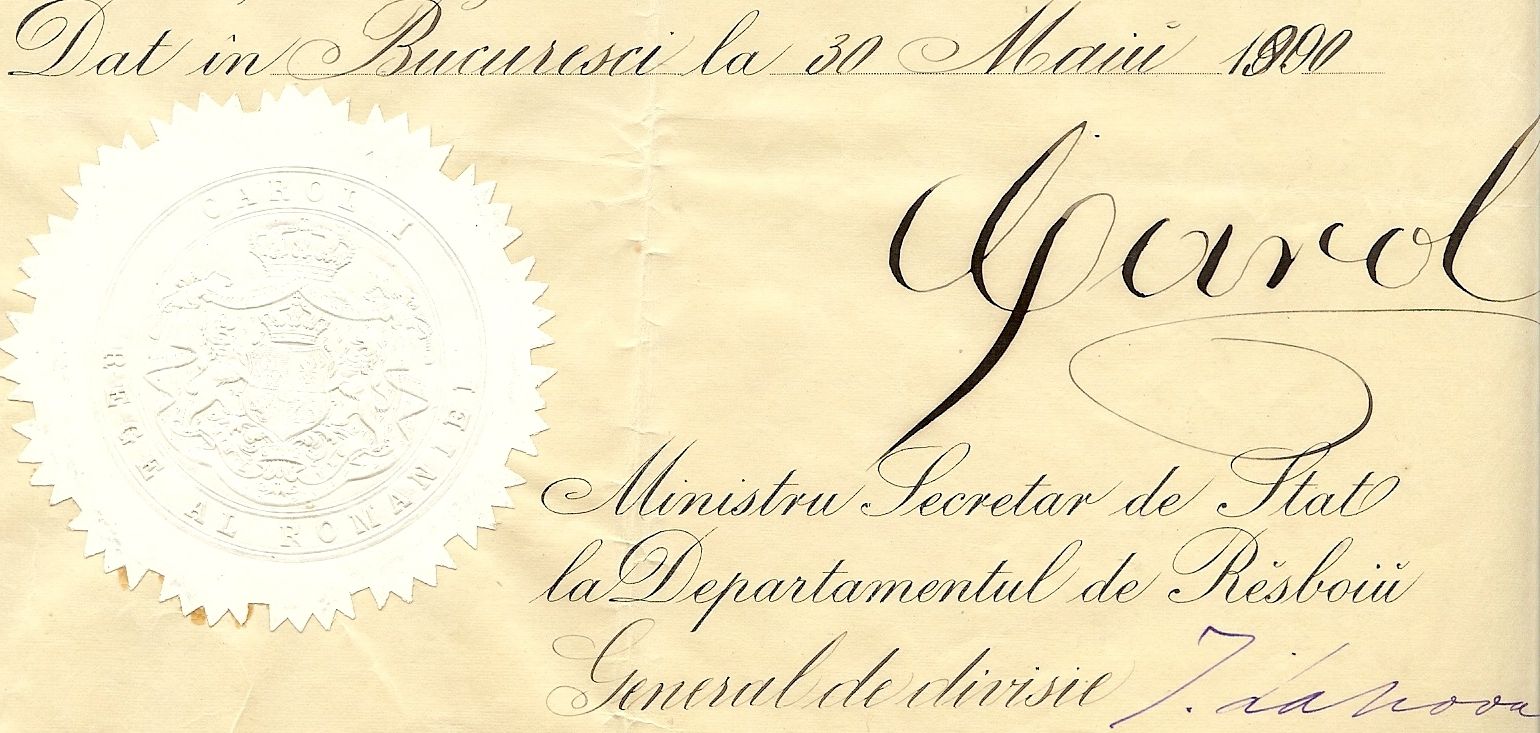 Dat în Bucuresci la 30 Maiŭ 1890
CAROL I
REGE AL ROMANIEI
Carol
Ministru Secretar de Stat
la Departamentul de Rĕsboiŭ
General de divisie